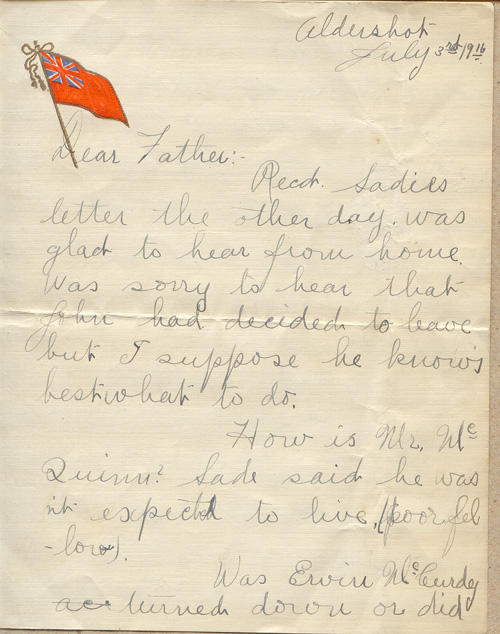 Aldershot
July 3rd 1916
Dear Father:-
Recd. Sadies
letter the other day. was
glad to hear from home.
Was sorry to hear that
John had decided to leave
but I suppose he knows
best what to do.
How is Mr. Mc
Quinn? Sade said he was
n't expected to live, (poor fel
-low).
Was Ervin McCurdy
turned down or did